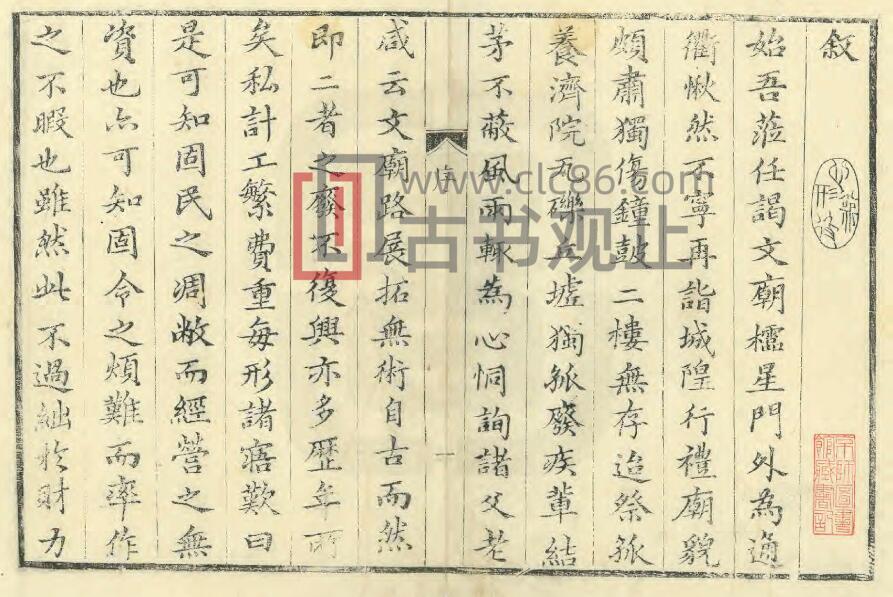 敘
始吾蒞任謁文廟櫺星門外為通
衢愀然不寧再詣城隍行禮廟貌
頗肅獨傷鐘鼓二樓無存迨祭孤
養濟院瓦礫丘墟獨孤廢疾輩結
茅不蔽風雨輒為心恫詢諸父老
咸云文廟路展拓無術自古而然
即二者之廢不復興亦多歷年所
矣私計工繁費重每形諸寤歎曰
是可知固民之凋敝而經營之無
資也亦可知固令之煩難而率作
之不暇也雖然此不過絀於財力
序
一
www.clc86.com
古书观止